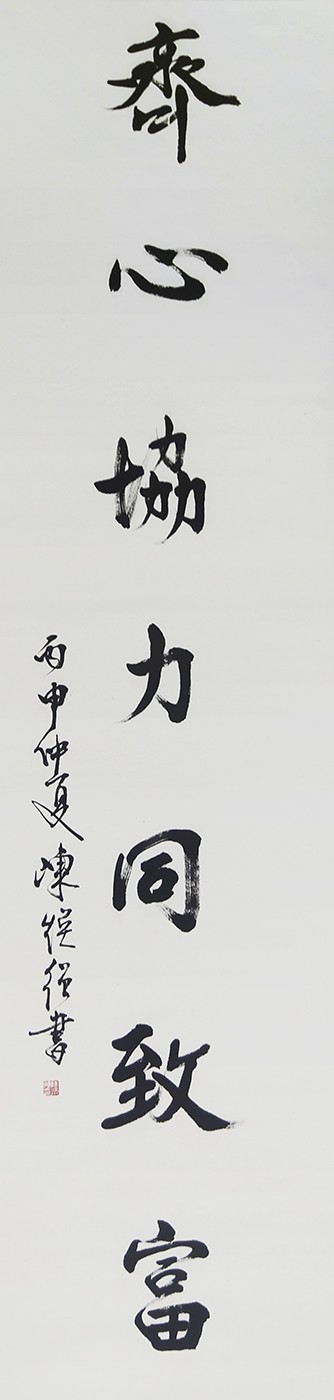 齊心協力同致富
丙申仲夏陳書